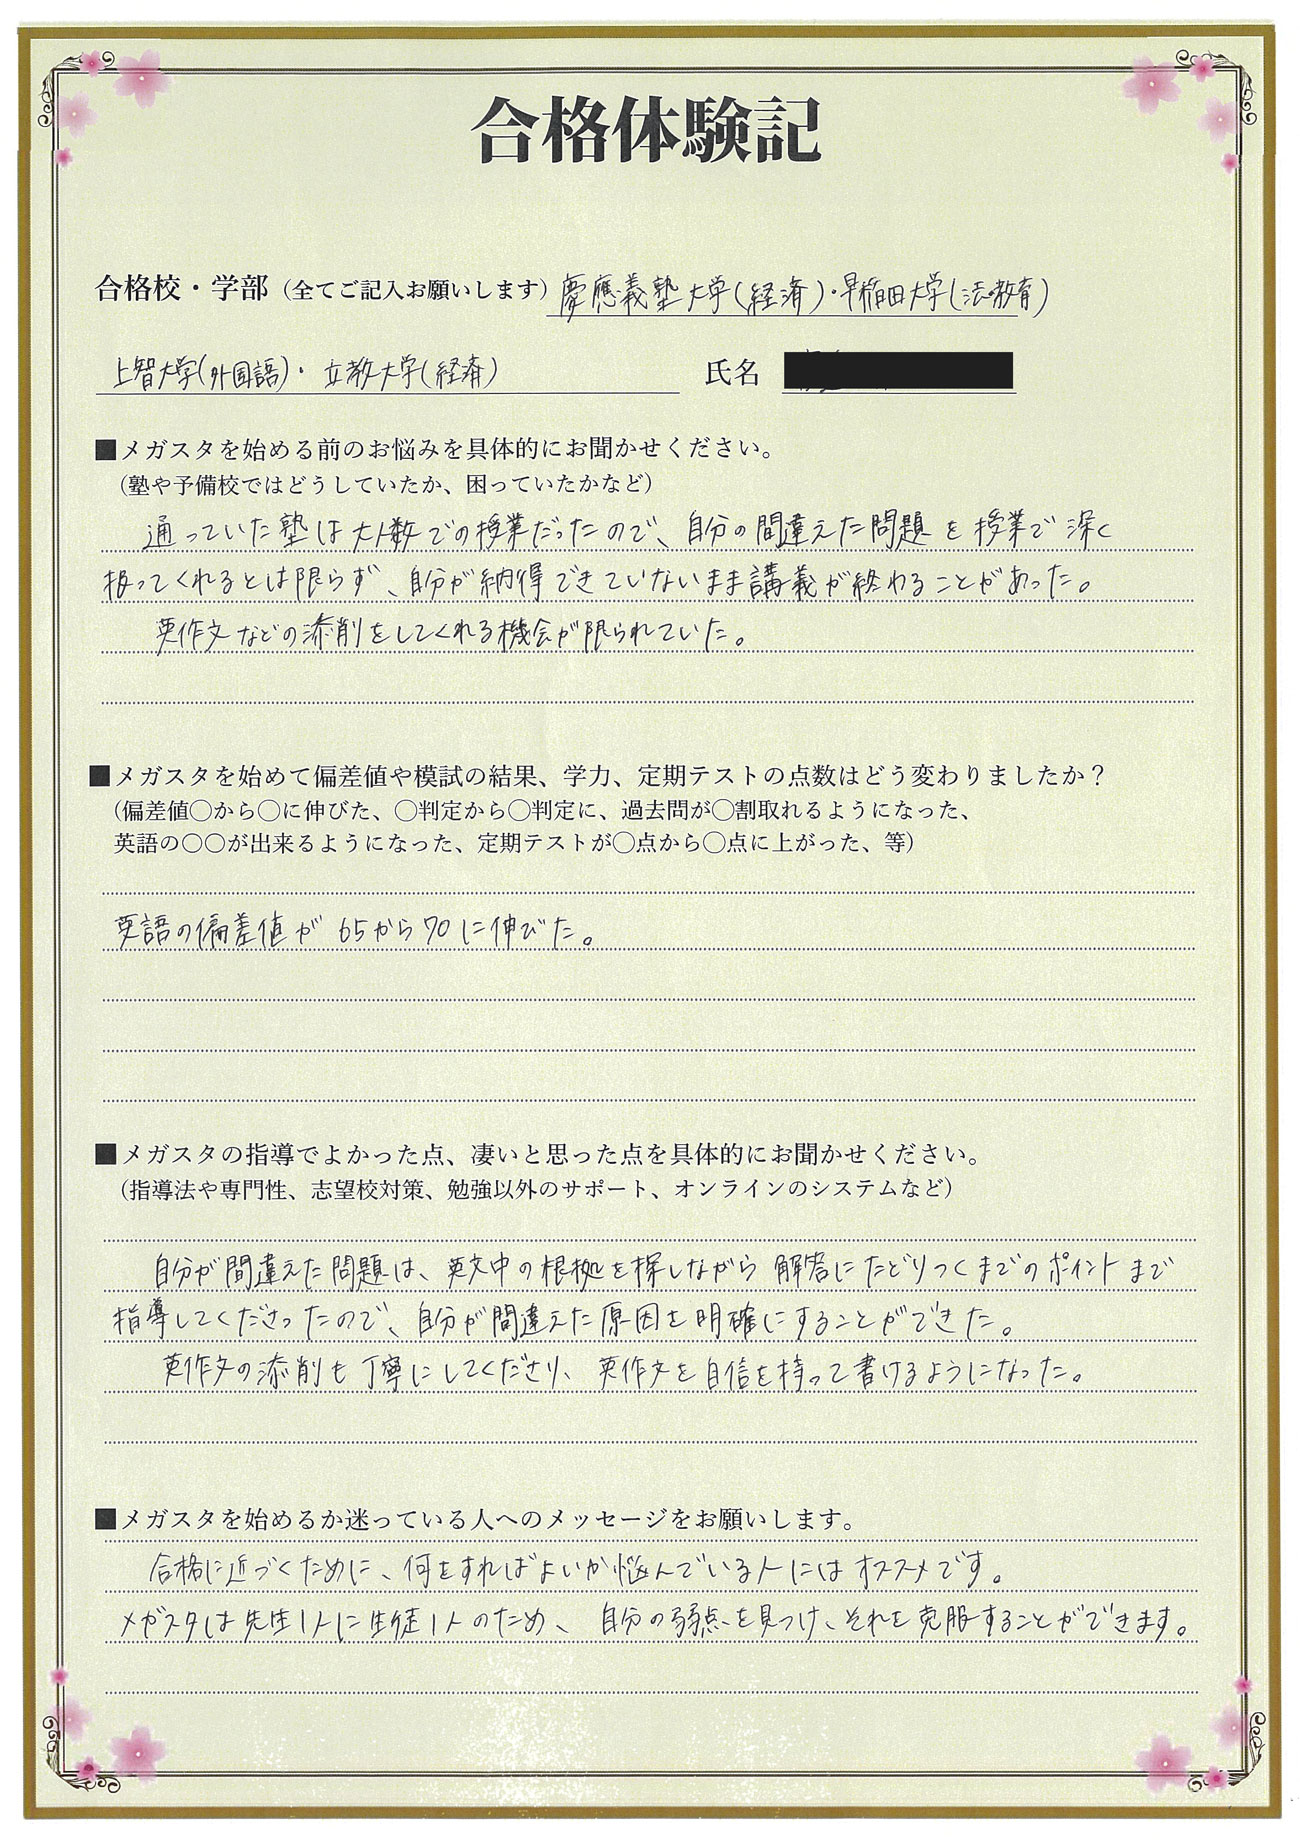 合格体験記
合格校・学部（全てご記入お願いします）慶應義塾大学(経済)・早稲田大学(法・教育)
上智大学(外国語)・立教大学(経済)　氏名
■メガスタを始める前のお悩みを具体的にお聞かせください。
（塾や予備校ではどうしていたか、困っていたかなど）
通っていた塾は大人数での授業だったので、自分の間違えた問題を授業で深く
扱ってくれるとは限らず、自分が納得できていないまま講義が終わることがあった。
英作文などの添削をしてくれる機会が限られていた。
■メガスタを始めて偏差値や模試の結果、学力、定期テストの点数はどう変わりましたか？
（偏差値〇から〇に伸びた、〇判定から〇判定に、過去問が〇割取れるようになった、
英語の〇〇が出来るようになった、定期テストが〇点から〇点に上がった、等）
英語の偏差値が65から70に伸びた。
■メガスタの指導でよかった点、凄いと思った点を具体的にお聞かせください。
（指導法や専門性、志望校対策、勉強以外のサポート、オンラインのシステムなど）
自分が間違えた問題は、英文中の根拠を探しながら解答にたどりつくまでのポイントまで
指導してくださったので、自分が間違えた原因を明確にすることができた。
英作文の添削も丁寧にしてくださり、英作文を自信を持って書けるようになった。
■メガスタを始めるか迷っている人へのメッセージをお願いします。
合格に近づくために、何をすればよいか悩んでいる人にはオススメです。
メガスタは先生1人に生徒1人のため、自分の弱点を見つけ、それを克服することができます。